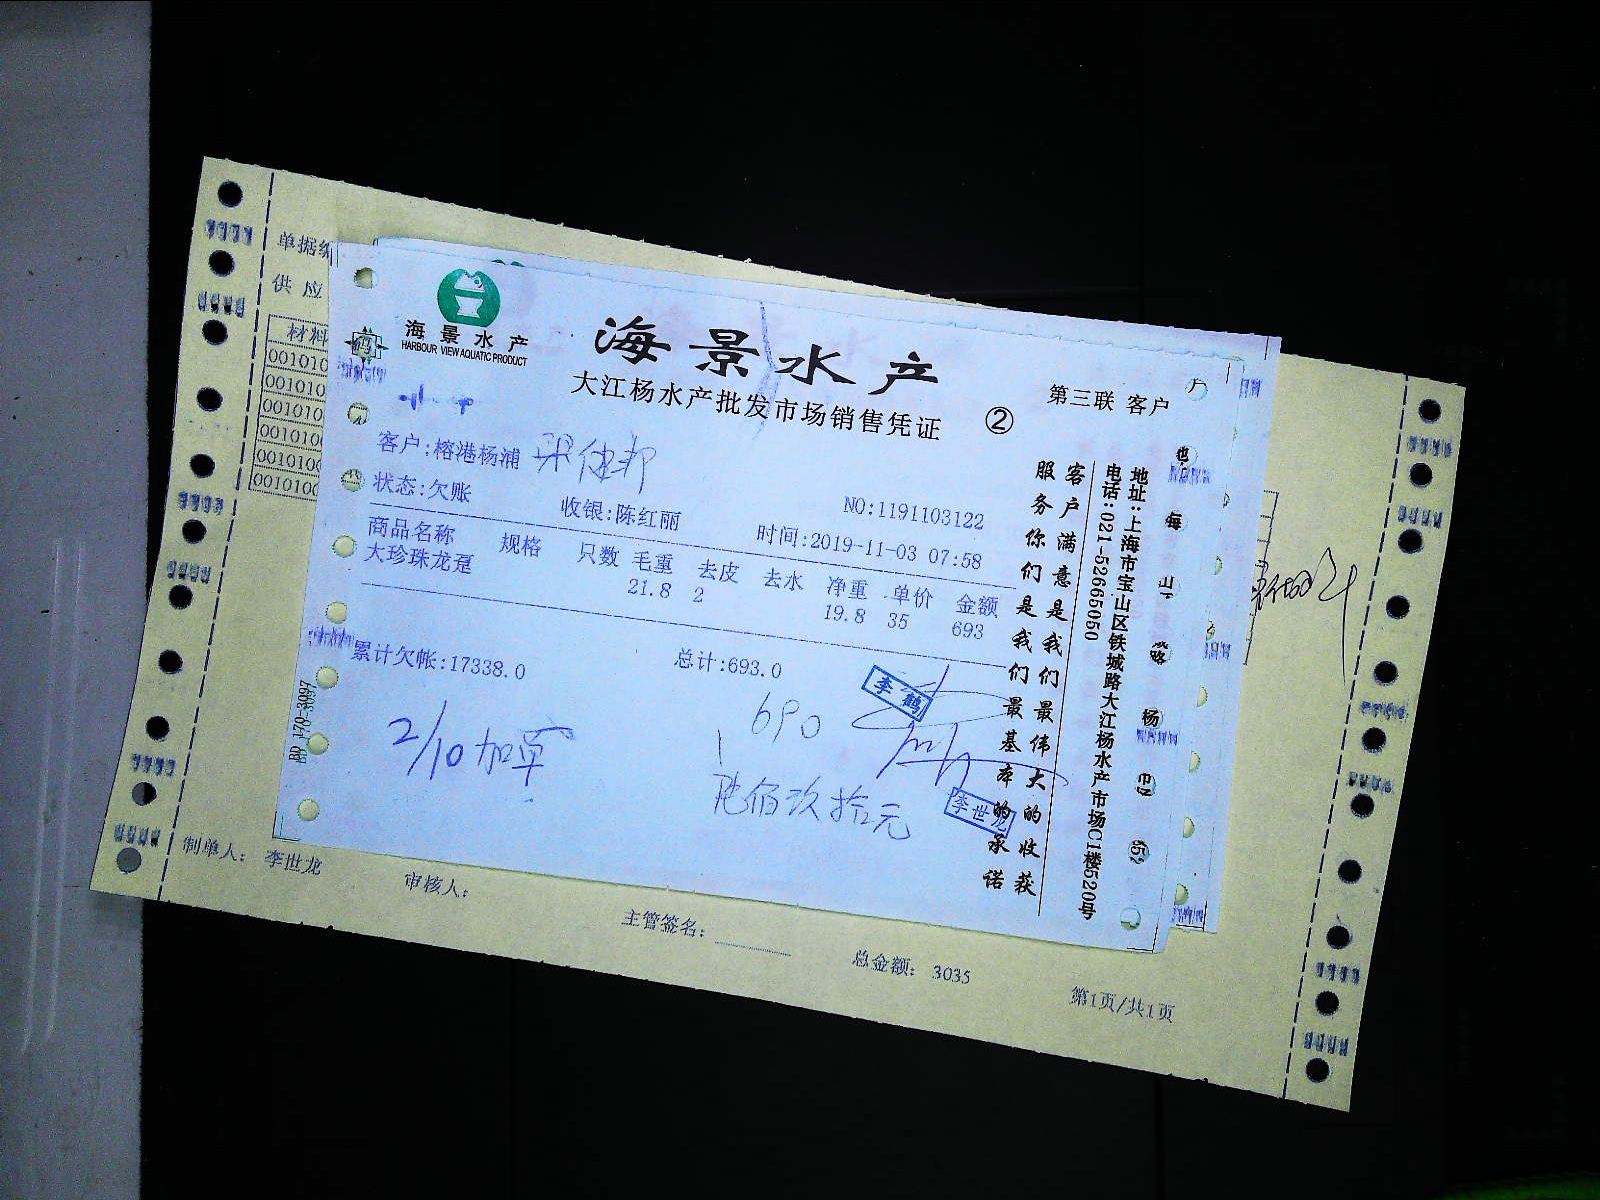 单据编
供应
材料
001010
001010
001010
001010
0010100
0010100
海景水产
HARBOUR VIEW AQUATIC PRODUCT
海景水产
大江杨水产批发市场销售凭证 ②
第三联 客户
客户:榕港杨浦
状态:欠账
收银:陈红丽
NO:1191103122
时间:2019-11-03 07:58
商品名称 规格 只数 毛重 去皮 去水 净重 单价 金额
大珍珠龙趸 21.8 2 19.8 35 693
累计欠帐:17338.0
总计:693.0
690
2/10加单
陆佰玖拾元
李鹤
李世龙
客户满意是我们最伟大的收获
服务你们是我们最基本的承诺
地址:上海市宝山区铁城路大江杨水产市场C1楼520号
电话:021-52665050
制单人: 李世龙
审核人:
主管签名:
总金额: 3035
第1页/共1页